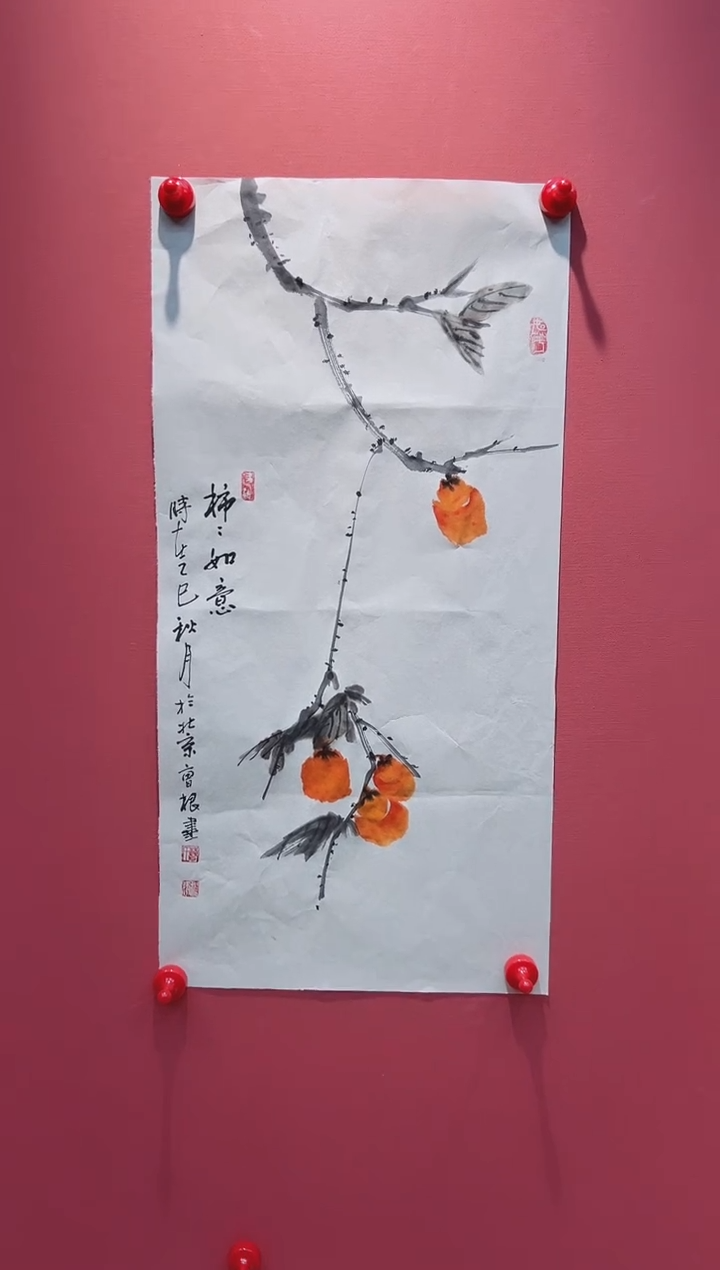 柿〻如意
時在乙巳秋月於北京曾根畫